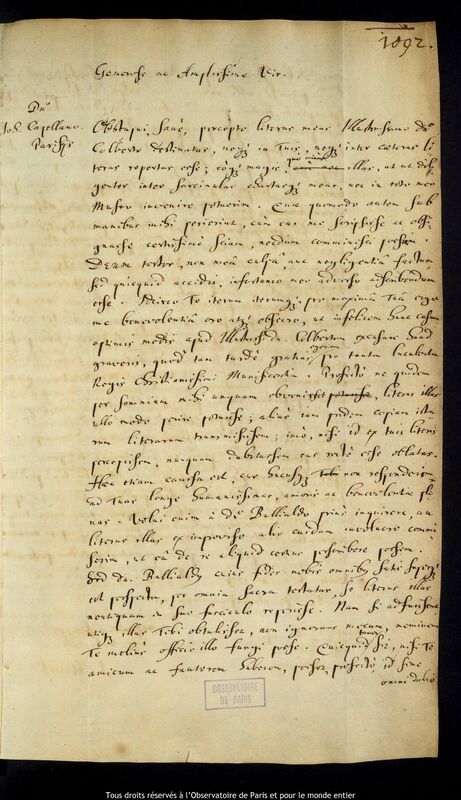 1892.
Generose ac Amplissime Vir.
Dno
Joh. Capellano
Parisijs
Obstupui sanè, percepto literas meas Illustrissimo Dno
Colberto destinatas, neq; in Tuis, neq; inter caeteras li
teras repertas esse; eoq; magis, quo minus illas, ut ut dili
genter inter sarcinulas chartasq; meas, nec in toto meo
Musaeo invenire potuerim. Quae quomodo autem sub
manibus mihi perierint, cùm eas me scripsisse ac obsi-
gnasse certissimè sciam, necdum comminisci possum.
Deum testor, non meâ culpâ, aut negligentiâ factum
sed quicquid accidit, infortunio meo adverso adscribendum
esse. Idcirco Te iterum iterumq; pro maxima Tua erga
me benevolentia oro atq; obsecro, ut infelicem hunc casum
optimis modis apud Illustriss. Dn. Colbertum excusare haud
graveris, quòd tam tardè gratias pro tanta luculenta
Regis Christianissimi Munificentia. Profectò ne quidem
per somnium mihi unquam obvenisset, literas illas
ullo modo perire potuisse; aliàs jam pridem copiam ista
rum literarum transmisissem; imò, nisi id ex tuis literis
percepissem, nunquam dubitassem eas rectè esse oblatas.
Haec etiam caussa est, cur hucusq; non responderim
ad Tuas longè humanissimas, amoris ac benevolentiae ple
nas. Volui enim à Dno Bullialdo priùs inquirere, an
literas illas ex improviso alio cuidam involucro commi
serim, ut eâ de re aliquid certius perscribere possem.
Sed Dn. Bullialdus cuius fides nobis omnibus satis superq;
est perspecta, per omnia sacra testatur, se literas illas
neutiquam in suo fasciculo reperisse. Nam si adfuissent
utiq; illas Tibi obtulisset, non ignorans mecum, neminem
Te meliùs officio illo fungi posse. Quicquid tamen sit, nisi Te
amicum ac fautorem haberem, posset profectò id sine
omni dubio
OBSERVATOIRE
DE PARIS
Tous droits réservés à l'Observatoire de Paris et pour le monde entier